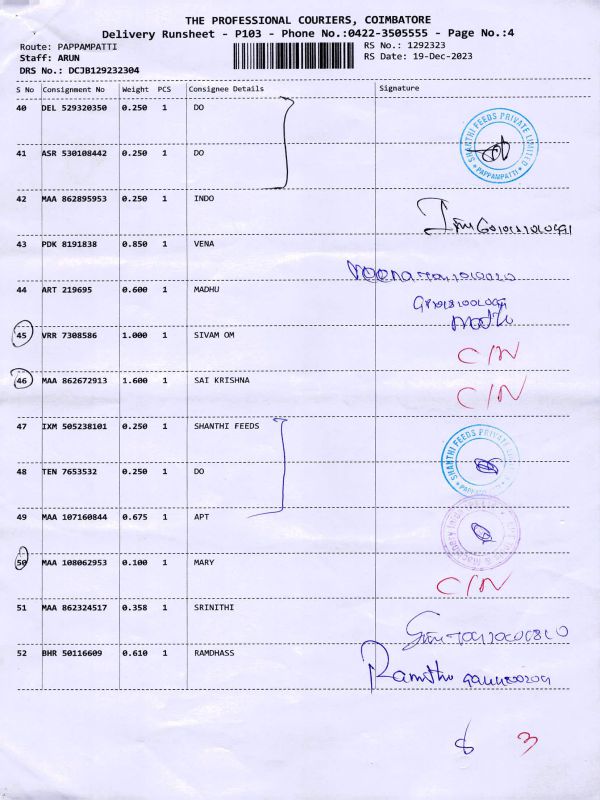 THE PROFESSIONAL COURIERS, COIMBATORE
Delivery Runsheet - P103 - Phone No.:0422-3505555 - Page No.:4
Route: PAPPAMPATTI
RS No.: 1292323
Staff: ARUN
RS Date: 19-Dec-2023
DRS No.: DCJB129232304
S No Consignment No Weight PCS Consignee Details Signature
40 DEL 529320350 0.250 1 DO
SHANTHI FEEDS PRIVATE LIMITED * PAPPAMPATTI *
41 ASR 530108442 0.250 1 DO
42 MAA 862895953 0.250 1 INDO
43 PDK 8191838 0.850 1 VENA
44 ART 219695 0.600 1 MADHU
45 VRR 7308586 1.000 1 SIVAM OM
C/N
46 MAA 862672913 1.600 1 SAI KRISHNA
C/N
47 IXM 505238101 0.250 1 SHANTHI FEEDS
SHANTHI FEEDS PRIVATE
48 TEN 7653532 0.250 1 DO
49 MAA 107160844 0.675 1 APT
50 MAA 108062953 0.100 1 MARY
C/N
51 MAA 862324517 0.358 1 SRINITHI
52 BHR 50116609 0.610 1 RAMDHASS
3